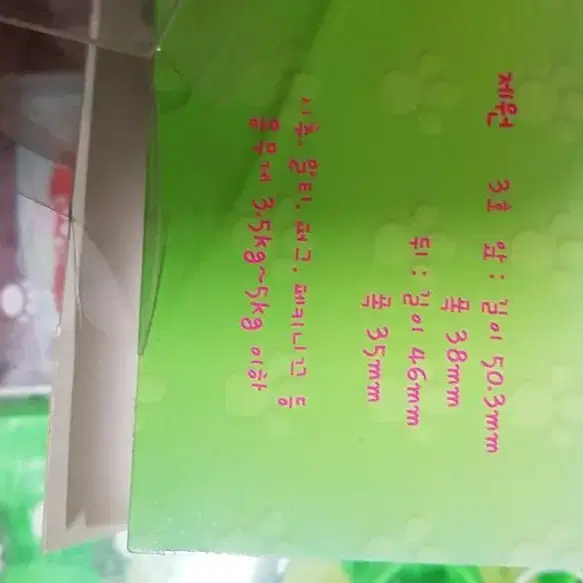 제원 3호 앞 : 길이 50.3mm
폭 38mm
뒤 : 길이 46mm
폭 35mm
시츄. 말티. 퍼그. 페키니즈 등
몸무게 3.5kg~5kg 이하